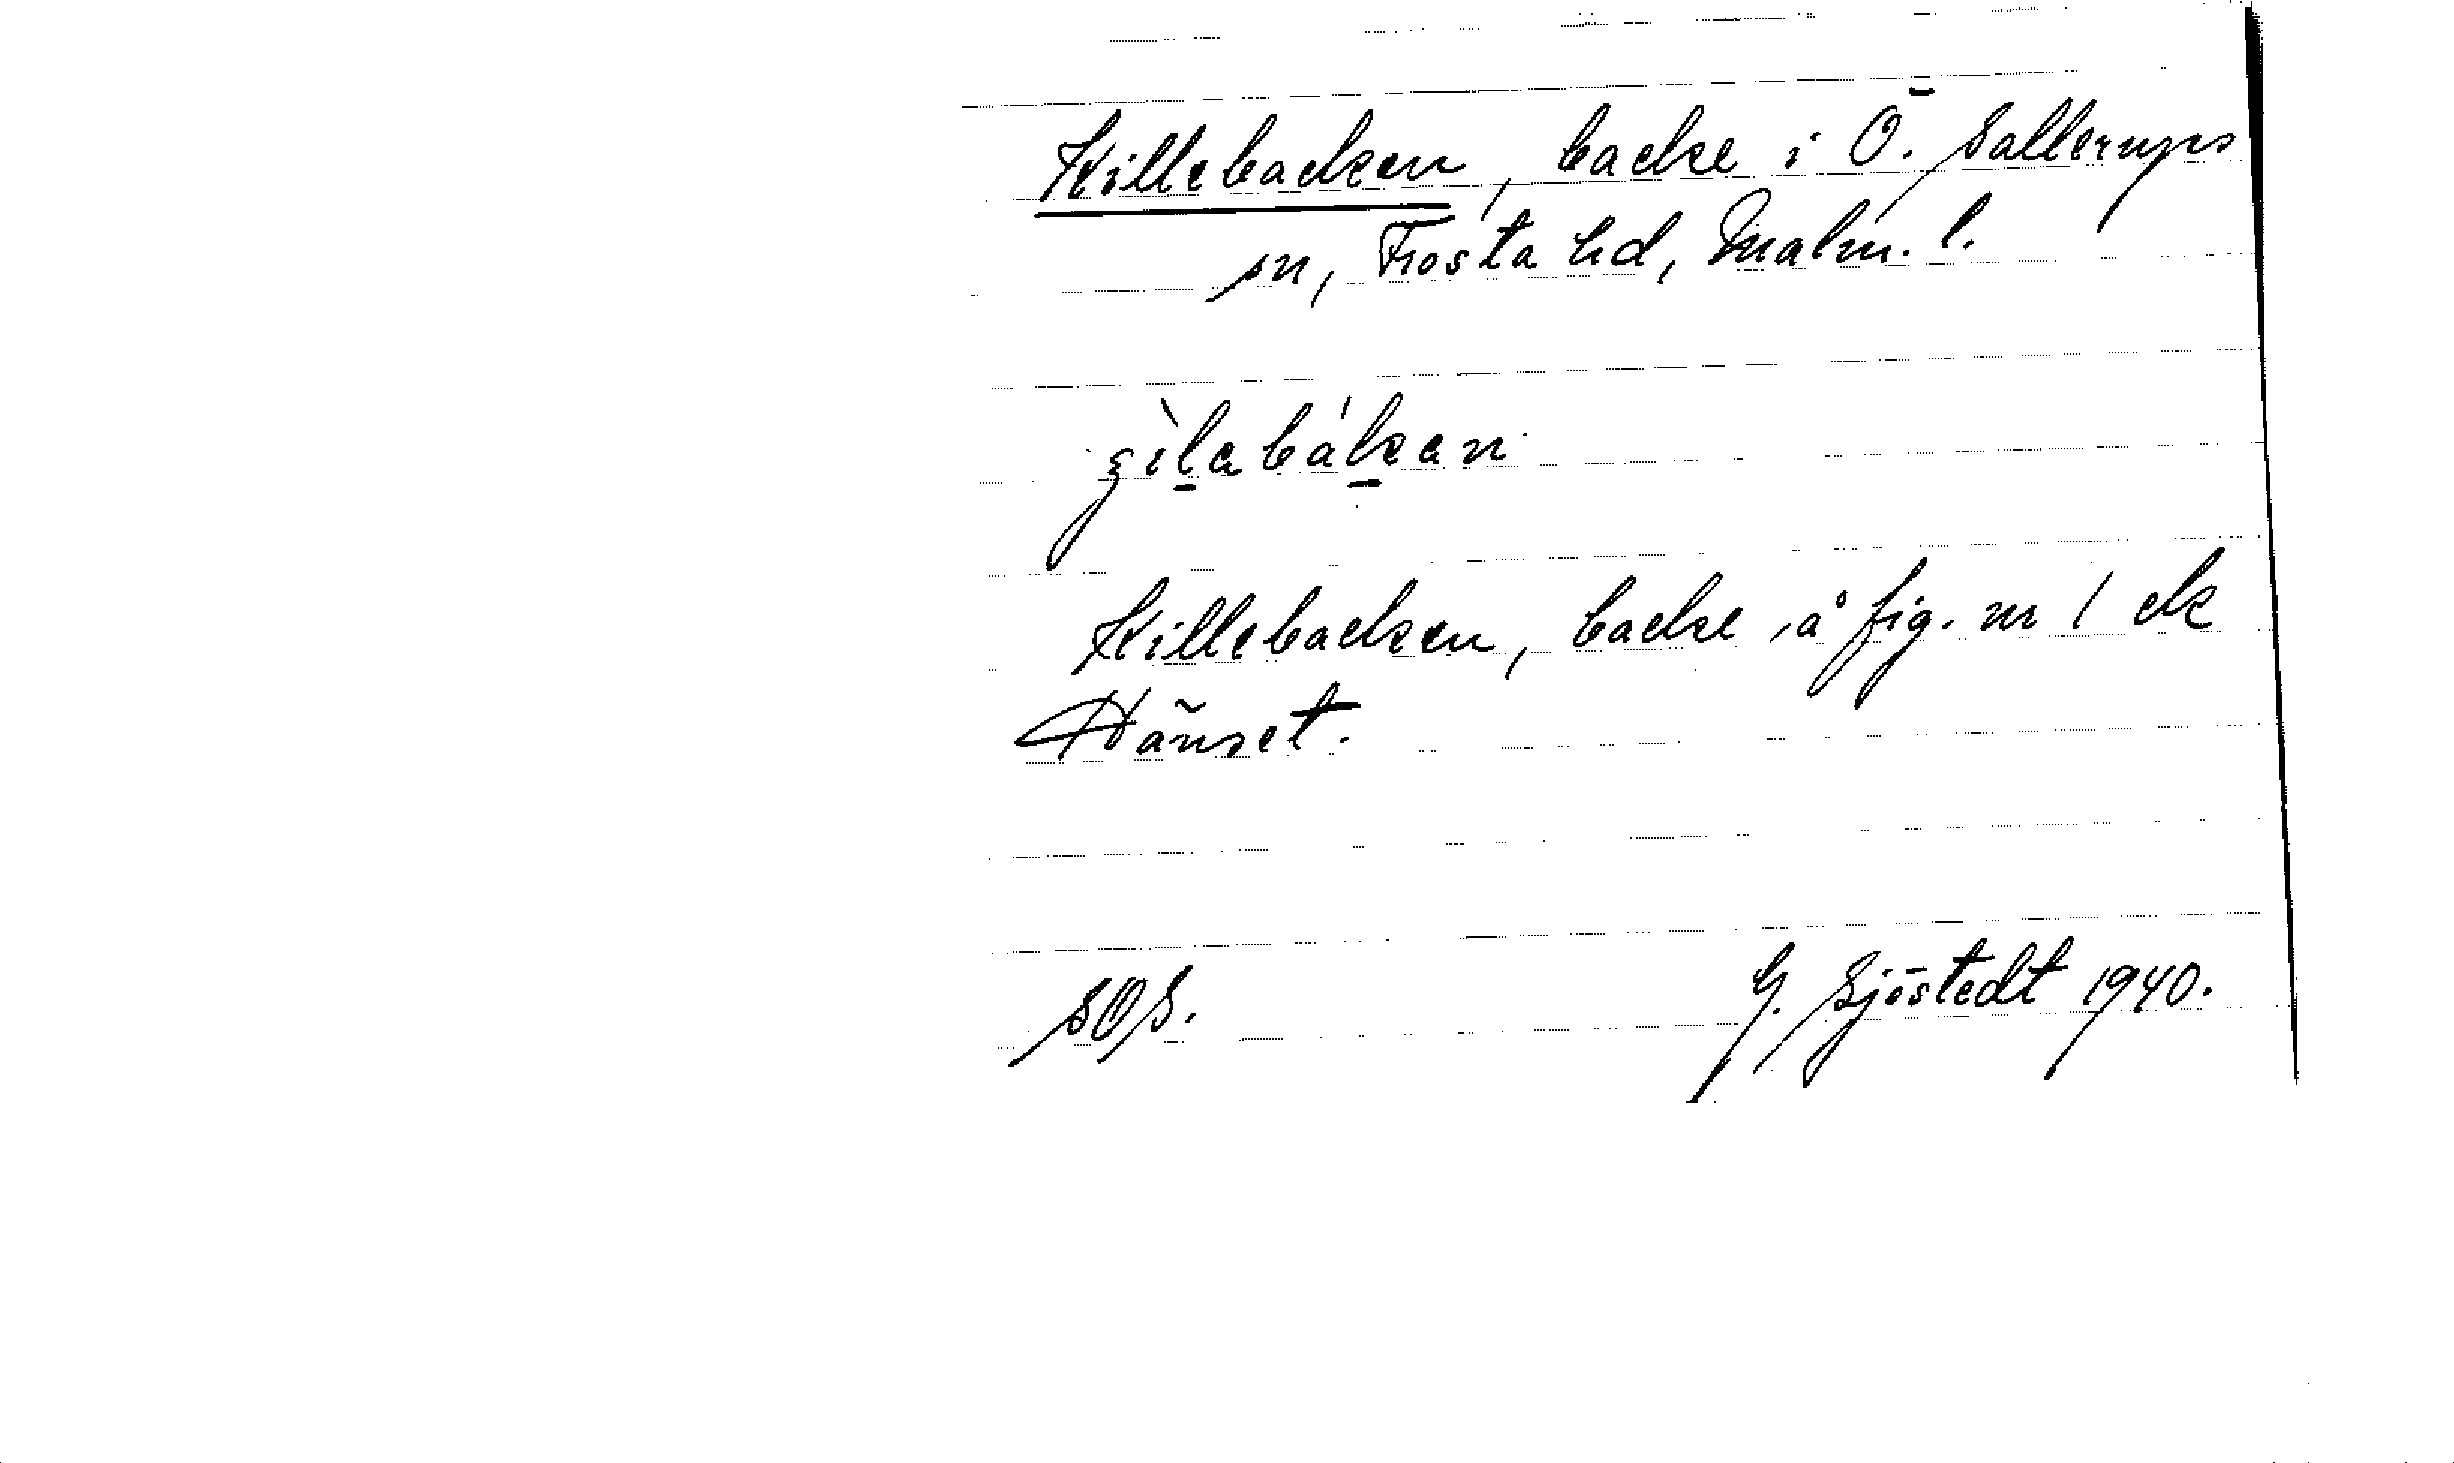 Killebacken, backe i Ö. Sallerups
sn, Frosta hd, Malm. l.
Killebacken, backe å fig. nr 1 ek
Hänset.
SOS.
G. Sjöstedt 1940.